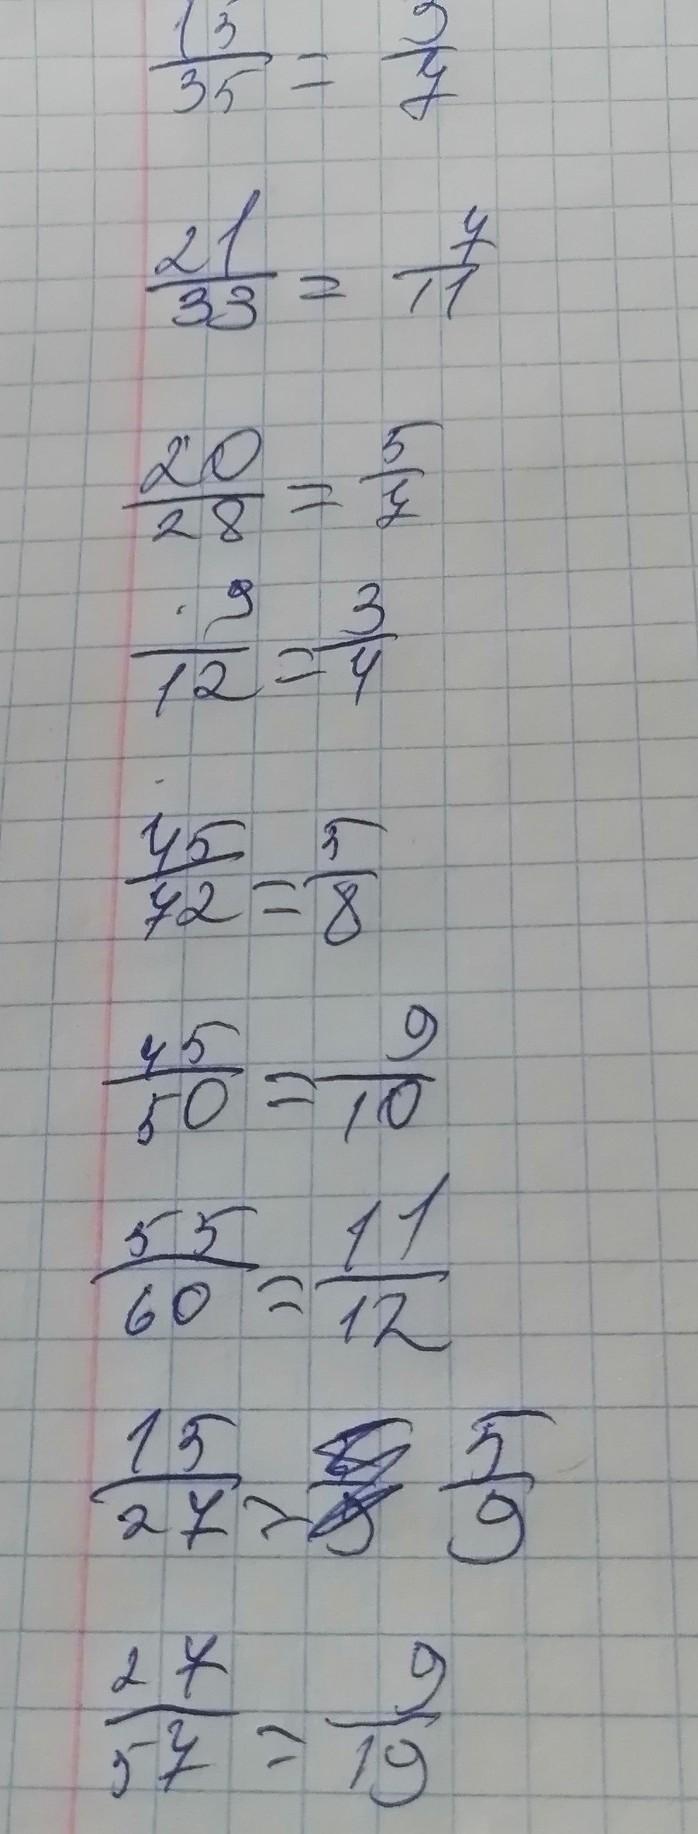 15/35 = 3/7
21/33 = 7/11
20/28 = 5/7
9/12 = 3/4
45/72 = 5/8
45/50 = 9/10
55/60 = 11/12
15/27 = 5/9
27/57 = 9/19